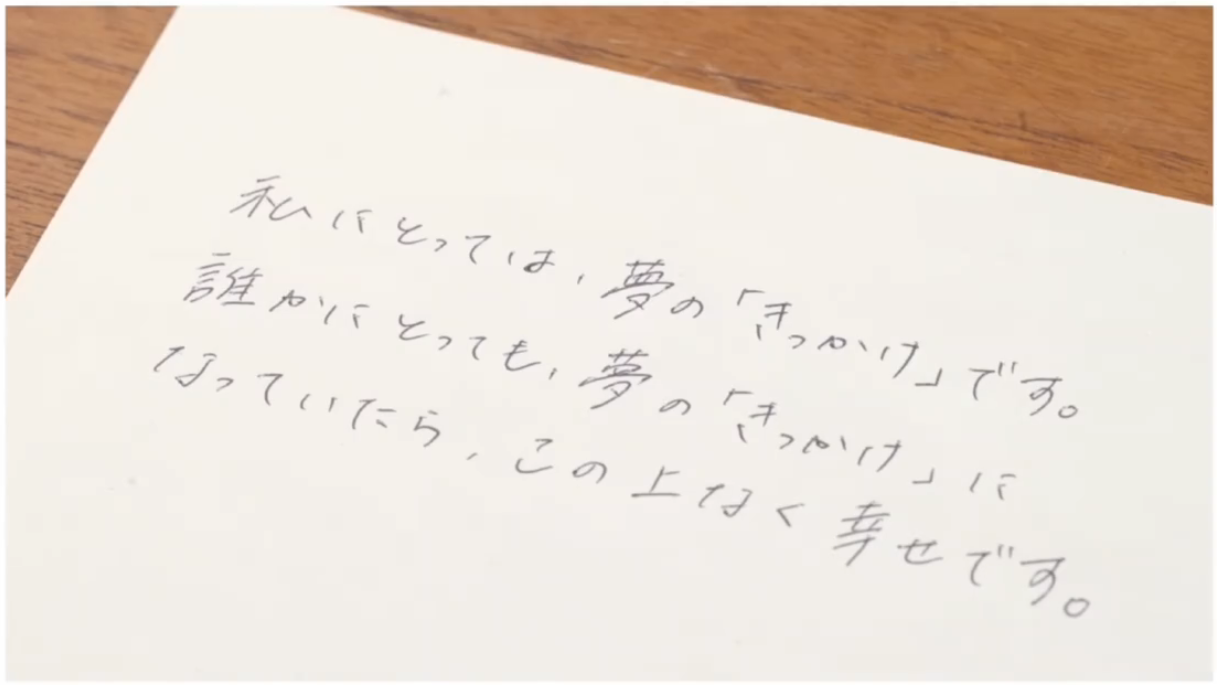 私にとっては、夢の「きっかけ」です。
誰かにとっても、夢の「きっかけ」に
なっていたら、この上なく幸せです。